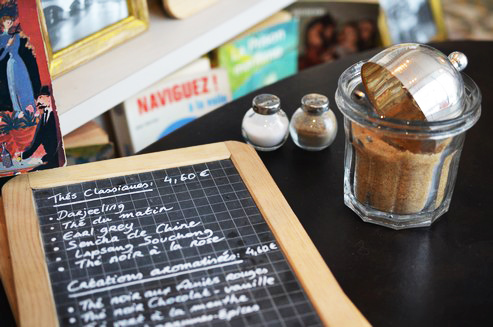 NAVIGUEZ !
à la voile
Thés Classiques: 4,60 €
• Darjeeling
• Thé du matin
• Earl grey
• Sencha de Chine
• Lapsang Souchong
• Thé noir à la rose
Créations aromatisées: 4,60 €
• Thé noir aux fruits rouges
• Thé noir Chocolat - vanille
• Thé vert à la menthe
épices